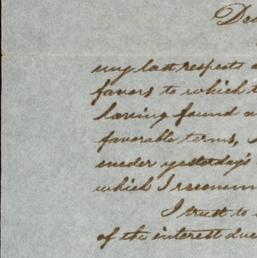 De
my last respects
favors to which
having found a
favorable terms,
under yesterday's
which I recomm
I trust to
of the interest due